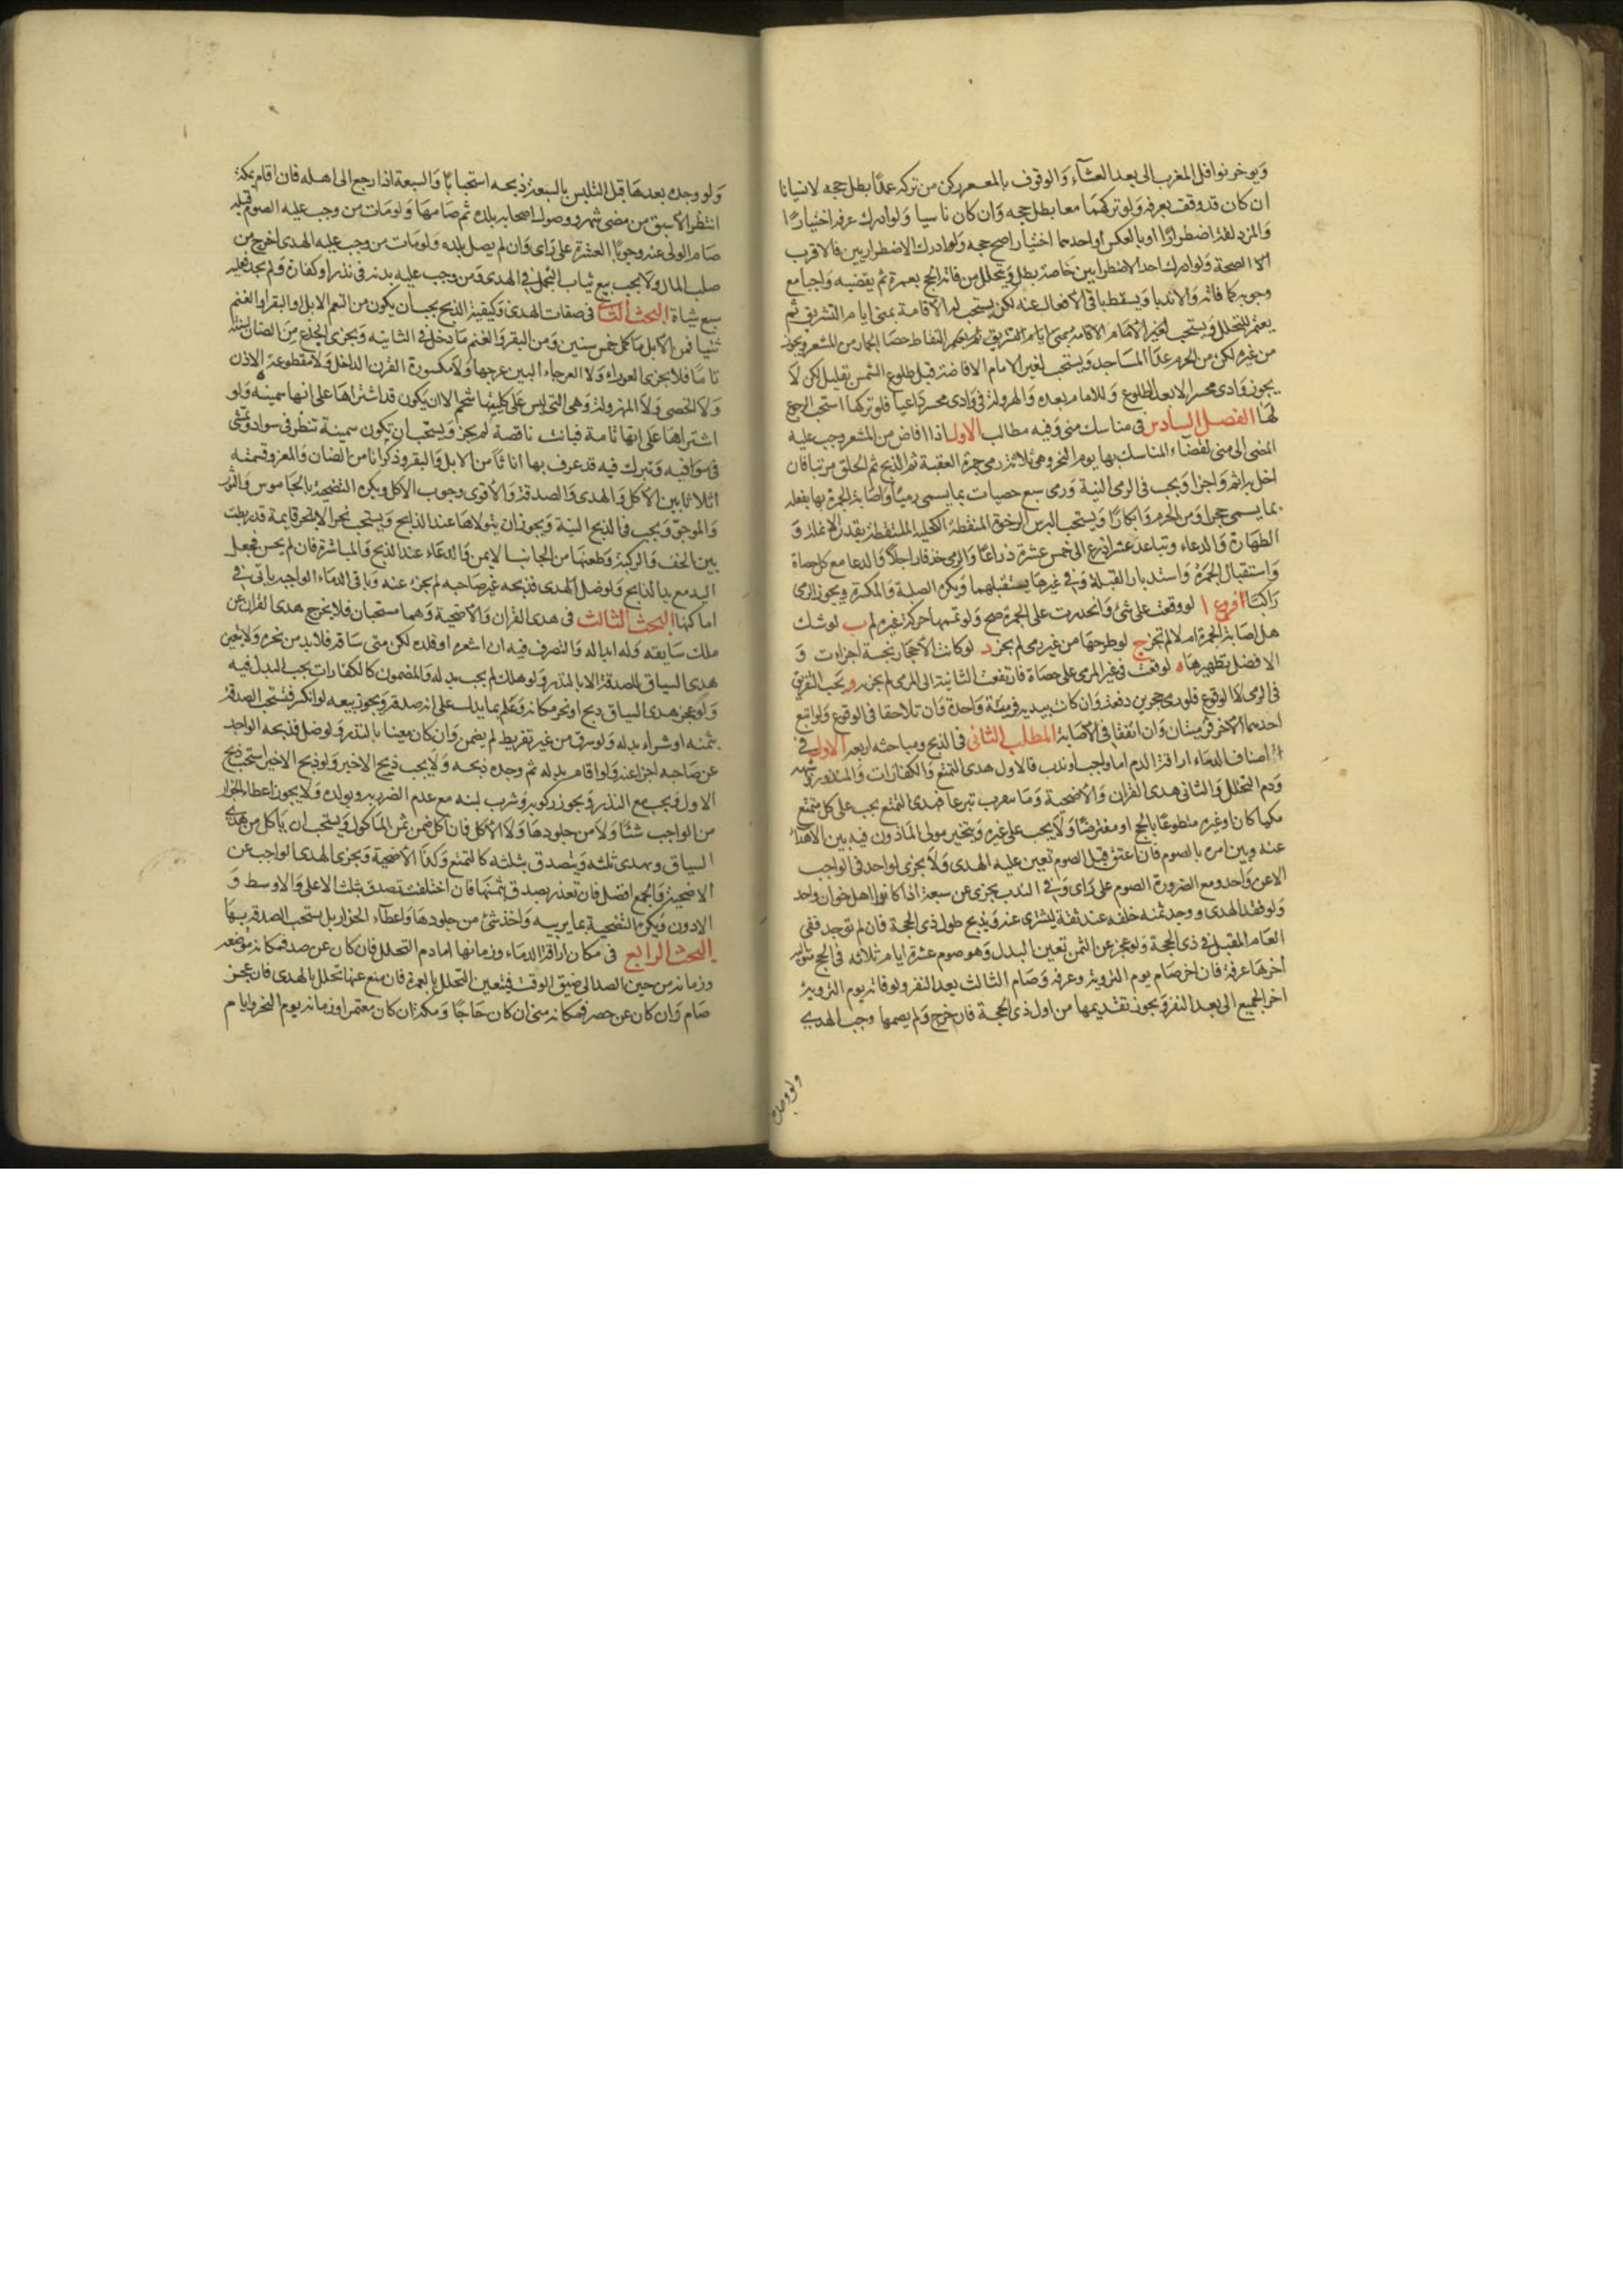 وَيوخر نوافل المغرب الى بعد العشآء وَالوقوف بالمعـر ركن من تركه عمدًا بطل حجه لا نسيانا
ان كان قد وقف بعرفه وَلو تركهما معا بطل حجه وَان كان ناسيا وَلو ادرك عرفه اختيارًا
وَالمزدلفة اضطرارًا او بالعكس او احدهما اختيارا صح حجه وَلو ادرك الاضطراريين فالاقرب
الصحة وَلو ادرك احد الاضطراريين خاصة بطل وَيتحلل من فاته الحج بعمرة ثم يقضيه وَاجبا مع
وجوبه كما فاته وَالا ندبا وَيسقط باقي الافعال عنه لكن يستحب له الاقامة بمنى ايام التشريق ثم
يعتمر للتحلل وَيستحب التقاط حصا الجمار من المشعر ويجوز
من غيره لكن من الحرم عدا المساجد وَيستحب لغير الامام الافاضة قبل طلوع الشمس بقليل لكن لا
يجوز وَادى محسر الا بعد الطلوع وَللامام بعده وَالهرولة في وَادى محسر دَاعيا فلو تركها استحب الرجوع
لها الفصل السادس في مناسك منى وَفيه مطالب الاول اذا افاض من المشعر وجب عليه
المضى الى منى لقضاء المناسك بها يوم النحر وهي ثلاثة رمى جمرة العقبة ثم الذبح ثم الحلق مرتبا فان
اخل به اثم وَاجزا وَيجب في الرمى النية وَرمى سبع حصيات بما يسمى رميًا وَاصَابة الجمرة بها بفعله
بما يسمى حجرا وَمن الحرم وَابكارًا وَيستحب البرش الرخوة المنقطة الكحلية الملتقطة بقدر الانملة وَ
الطهارة وَالدعاء وتباعد عشر اذرع الى خمس عشرة ذراعًا وَالرمى خذفا راجلاً وَالدعا مع كل حصاة
وَاستقبال الجمرة وَاستدبار القبلة وَفي غيرها يستقبلهما وَيكره الصلبة وَالمكسرة ويجوز الرمى
رَاكبًا افروع ا لو وقعت على شئ وَانحدرت على الجمرة صح وَلو تممها حركة غيره لم ب لو شك
هل اصَابة الجمرة ام لا لم تجز ج لو طرحها من غير رمى لم يجز د لو كانت الاحجار نجسة اجزات وَ
الافضل تطهيرها ه لو وقعت في غير المرمى على حصاة فارتفعت الثانية الى المرمى لم يجزه و يجب التفريق
في الرمى لا الوقوع فلو رمى حجرين دفعة وَان كان بيديه فرمية وَاحدة وَان تلاحقا في الوقوع وَلو اتبع
احدهما الاخر فرميتان وَان اتفقا في الاصابة المطلب الثاني في الذبح ومباحثه اربعه الاول في
اصناف الدماء اراقة الدم اما وَاجب او ندب فالاول هدى التمتع وَالكفارات وَالمنذور وشبهه
وَدم التحلل وَالثاني هدى القران وَالاضحية وَمَا يتقرب تبرعا فهدى التمتع يجب على كل متمتع
مكيا كان او غيره متطوعًا بالحج او مفترضًا وَلا يجب على غيره وَيتخير مولى الماذون فيه بين الاهداء
عنه وبين امره بالصوم فان اعتق قبل الصوم تعين عليه الهدى وَلا يجزى الواحد في الواجب
الا عن وَاحد ومع الضرورة الصوم على رَاى وَفي الندب يجزى عن سبعة اذا كانوا اهل خوان واحد
وَلو فقد الهدى و وجد ثمنه خلفه عند ثقة ليشترى عنه وَيذبح طول ذى الحجة فان لم توجد ففى
العام المقبل في ذى الحجة وَلو عجز عن الثمن تعين البدل وَهو صوم عشرة ايام ثلاثه في الحج متوالية
اخرها عرفة فان اخر صَام يوم التروية وعرفه وَصَام الثالث بعد النفر ولو فاته يوم التروية
اخر الجميع الى بعد النفر وَيجوز تقديمها من اول ذى الحجة فان خرج وَلم يصمها وجب الهدي
ولو وجده
وَلو وجده بعدها قبل التلبس بالسبعة ذبحه استحبابًا وَالسبعة اذا رجع الى اهله فان اقام بمكة
انتظر الاسبق من مضى شهر و وصول اصحابه بلده ثم صَامها وَلو مات من وجب عليه الصوم قبله
صَام الولى عنه وجوبًا العشرة على رَاى وَان لم يصل بلده وَلو مَات من وجب عليه الهدى اخرج من
صلب المال وَلا يجب بيع ثياب التجمل في الهدى وَمن وجب عليه بدنة في نذر او كفارة وَلم يجد فعليه
سبع شياة البحث الثانى في صفات الهدى وَكيفية الذبح يجب ان يكون من النعم الابل او البقر او الغنم
ثنيا فمن الابل مَا كمل خمس سنين وَمن البقر وَالغنم مَا دخل في الثانيه وَيجزى الجذع من الضان لسنته
تامًا فلا يجزى العوراء وَلا العرجاء البين عرجها وَلا مكسورة القرن الداخل وَلا مقطوعة الاذن
وَلا الخصى وَلا المهزولة وَهى التى ليس على كليتيها شحم الا ان يكون قد اشتراها على انها سمينه وَلو
اشتراها عَلى انها تامة فبانت ناقصة لم يجز وَيستحب ان تكون سمينة تنظر في سواد وتمشى
في سواد وتبرك فيه قد عرف بها اناثًا من الابل وَالبقر وذكرانا من الضان وَالمعز وقسمته
اثلاثا بين الاكل وَالهدى وَالصدقة وَالاقوى وجوب الاكل ويكره التضحية بالجاموس وَالثور
وَالموجؤ وَيجب في الذبح النية وَيجوز ان يتولاها عنه الذابح وَيستحب نحر الابل قايمة قد ربطت
بين الخف وَالركبة وَطعنها من الجانب الايمن وَالدعاء عند الذبح وَالمباشرة فان لم يحسن فجعل
اليد مع يد الذابح وَلو ضل الهدى فذبحه غير صَاحبه لم يجز عنه وَباقى الدماء الواجبه ياتى في
اماكنها البحث الثالث في هدى القران وَالاضحية وَهما مستحبان فلا يخرج هدى القران عن
ملك سَايقه وَله ابداله وَالتصرف فيه ان اشعره او قلده لكن متى سَاقه فلابد من نحره وَلا يتعين
هدى السياق للصدقة الا بالنذر وَلو هلك لم يجب بدله وَالمضمون كالكفارات يجب البدل فيه
وَلو عجز هدى السياق ذبح او نحر مكانه وَعلم بما يدل على انه صدقة وَيجوز بيعه لو انكسر فتستحب الصدقة
بثمنه او شراء بدله وَلو سرق من غير تفريط لم يضمن وَان كان معينا بالنذر وَلو ضل فذبحه الواجد
عن صَاحبه اجزا عنه وَلو اقام بدله ثم وجده ذبحه وَلا يجب ذبح الاخير وَلو ذبح الاخير استحب ذبح
الاول وَيجب مع النذر وَيجوز ركوبه وَشرب لبنه مع عدم الضرر به وبولده وَلا يجوز اعطاء الجزار
من الواجب شئًا وَلا من جلودها وَلا الاكل فان اكل ضمن ثمن المأكول وَيستحب ان يَاكل من هدى
السياق ويهدى ثلثه وَيتصدق بثلثه كالتمتع وَكذا الاضحية وَيجزى الهدى الواجب عن
الاضحية وَالجمع افضل فان تعذر يصدق بثمنها فان اختلفت تصدق بثلث الاعلى وَالاوسط وَ
الادون وَيكره التضحية بما يربيه وَاخذ شئ من جلودها وَاعطآء الجزار بل يستحب الصدقة بها
البحث الرابع في مكان اراقة الدماء وزمانها اما دم التحلل فان كان عن صد فمكانه موضعه
وزمانه من حين الصد الى ضيق الوقت فيتعين التحلل بالعمرة فان منع عنها تحلل بالهدى فان عجز
صَام وَان كان عن حصر فمكانه منى ان كان حَاجًا وَمكة ان كان معتمرا وزمانه يوم النحر وايام